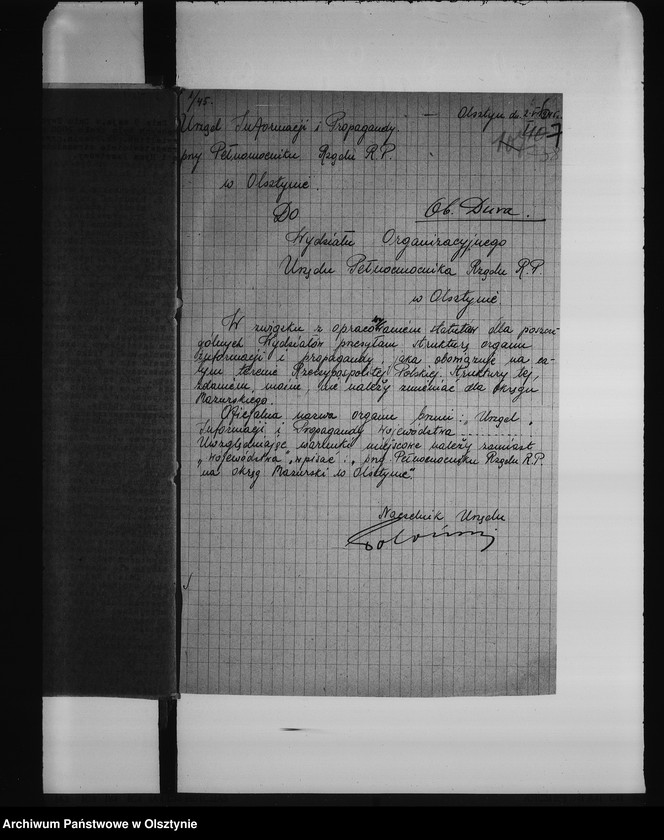 /45.
Olsztyn dn.
Urząd Informacji i Propagandy
przy Pełnomocniku Rządu R.P.
w Olsztynie.
Do Ob. Dura.
Wydziału Organizacyjnego
Urzędu Pełnomocnika Rządu R.P
w Olsztynie
W związku z opracowaniem statutów dla poszcze-
gólnych Wydziałów przesyłam strukturę organu
informacji i propagandy, jaka obowiązuje na ca-
łym terenie Rzeczypospolitej Polskiej. Struktury tej,
zdaniem moim, nie należy zmieniać dla okręgu
Mazurskiego.
Oficjalna nazwa organu brzmi: „Urząd
Informacji i Propagandy województwa
Uwzględniając warunki miejscowe należy zamiast
„województwa", wpisać: „przy Pełnomocniku Rządu R.P.
na okręg Mazurski w Olsztynie".
Naczelnik Urzędu
Archiwum Państwowe w Olsztynie